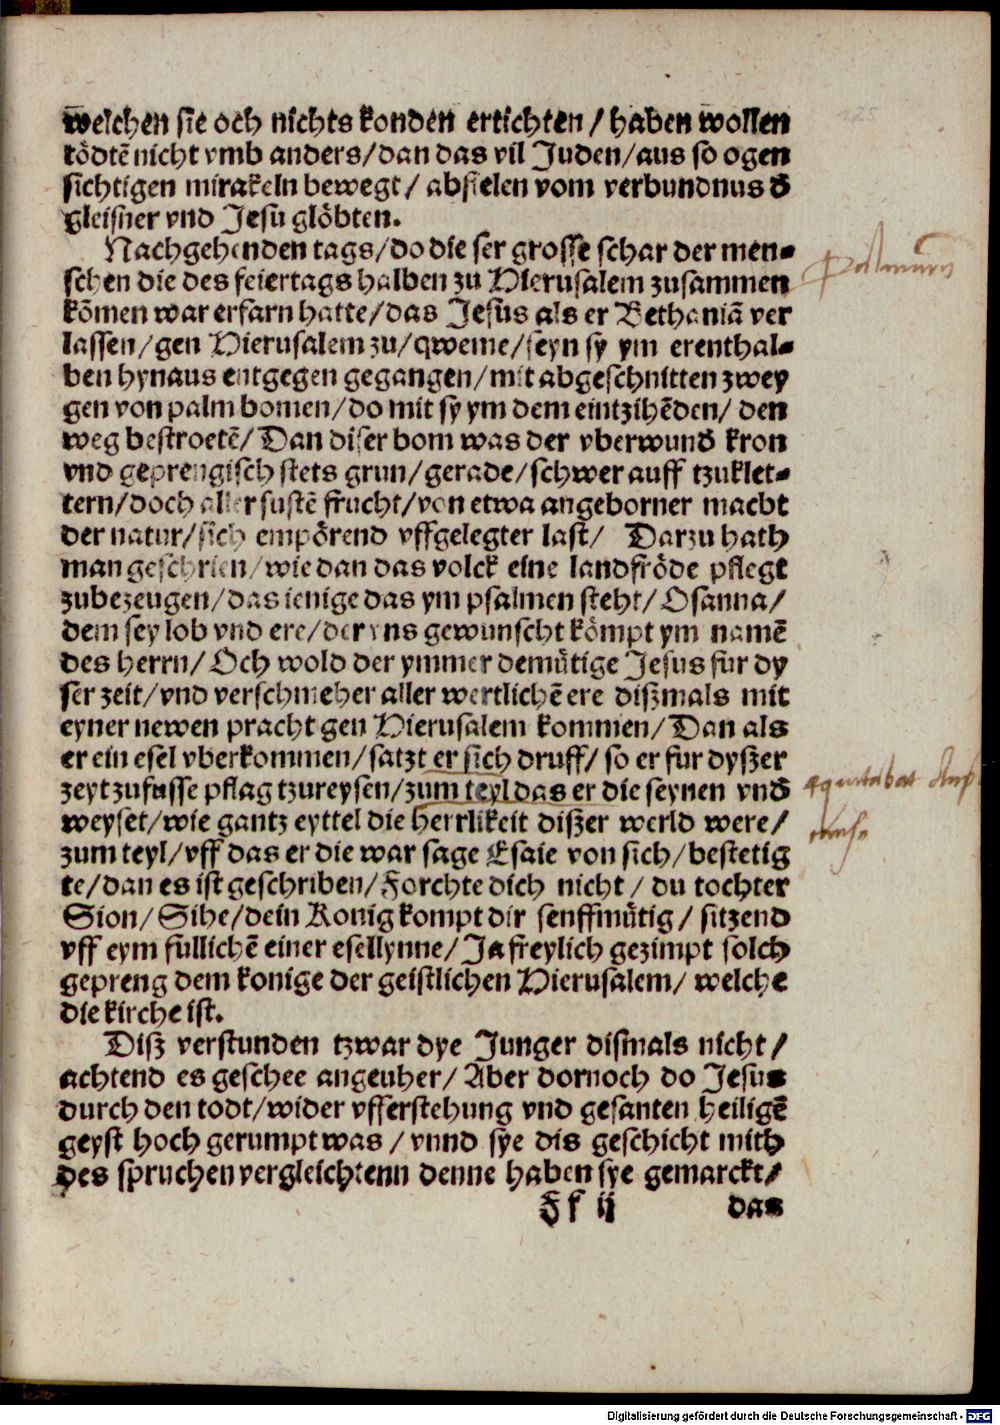 welchen sie och nichts konden ertichten / haben wollen
tödtē nicht vmb anders/dan das vil Juden/aus so ogen
sichtigen mirakeln bewegt/ abfielen vom verbundnus d̕
gleisner vnd Jesu glöbten.
Nachgehenden tags/do die ser grosse schar der men-
schen die des feiertags halben zu Hierusalem zusammen
kōmen war erfarn hatte/das Jesus als er Bethaniā ver
lassen/gen Hierusalem zu/qweme/seyn sy ym erenthal-
ben hynaus entgegen gegangen/mit abgeschnitten zwey
gen von palm bomen/do mit sy ym dem eintzihēden/ den
weg bestroetē/Dan diser bom was der vberwund̕ kron
vnd geprengisch stets grun/gerade/schwer auff tzuklet-
tern/doch aller sustē frucht/von etwa angeborner macht
der natur/sich empörend vffgelegter last/ Darzu hath
man geschrien/wie dan das volck eine landfröde pflegt
zubezeugen/das ienige das ym psalmen steht/Osanna/
dem sey lob vnd ere/der vns gewunscht kömpt ym namē
des herrn/Och wold der ymmer demütige Jesus fur dy
ser zeit/vnd verschmeher aller wertlichē ere diszmals mit
eyner newen pracht gen Hierusalem kommen/Dan als
er ein esel vberkommen/satzt er sich druff/ so er fur dyszer
zeyt zufusse pflag tzureysen/zum teyl das er die seynen vnd̕
weyset/wie gantz eyttel die herrlikeit diszer werld were/
zum teyl/vff das er die war sage Esaie von sich/bestetig
te/dan es ist geschriben/Forchte dich nicht/ du tochter
Sion/Sihe/dein Konig kompt dir senffmütig/ sitzend
vff eym fullichē einer esellynne/Ja freylich gezimpt solch
gepreng dem konige der geistlichen Hierusalem/ welche
die kirche ist.
Disz verstunden tzwar dye Junger dismals nicht/
achtend es geschee angeuher/Aber dornoch do Jesus
durch den todt/wider vfferstehung vnd gesanten heiligē
geyst hoch gerumpt was/vnnd sye dis geschicht mith
des spruchen vergleichtenn denne haben sye gemarckt/
Ff ij das
Digitalisierung gefördert durch die Deutsche Forschungsgemeinschaft - DFG